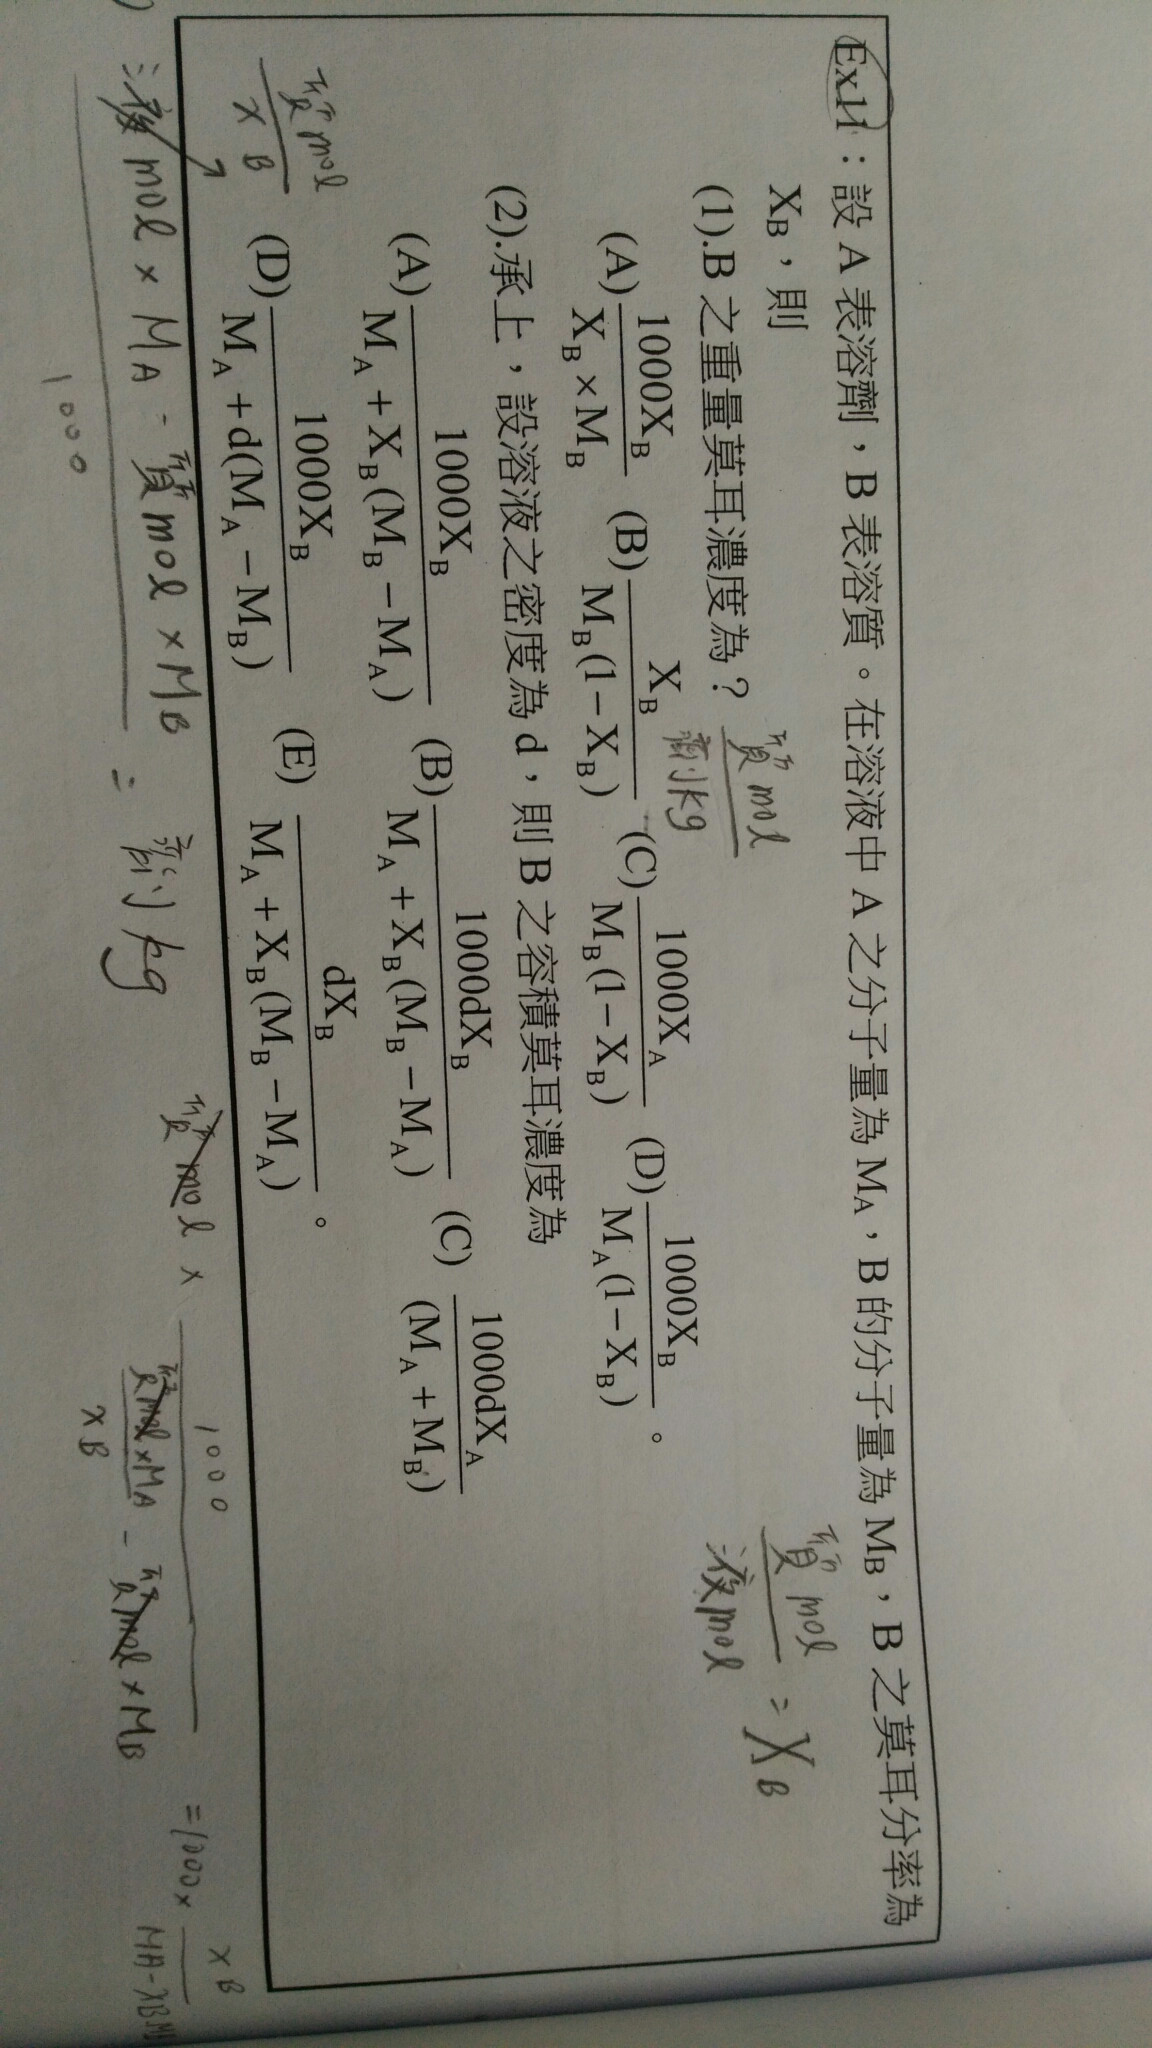 Ex11：設 A 表溶劑，B 表溶質。在溶液中 A 之分子量為 M_A，B 的分子量為 M_B，B 之莫耳分率為
X_B，則
質mol / 液mol = X_B
(1).B 之重量莫耳濃度為？ 質mol / 劑kg
(A) 1000X_B / X_B×M_B (B) X_B / M_B(1−X_B) (C) 1000X_A / M_B(1−X_B) (D) 1000X_B / M_A(1−X_B) 。
(2).承上，設溶液之密度為 d，則 B 之容積莫耳濃度為
(A) 1000X_B / M_A+X_B(M_B−M_A) (B) 1000dX_B / M_A+X_B(M_B−M_A) (C) 1000dX_A / (M_A+M_B)
(D) 1000X_B / M_A+d(M_A−M_B) (E) dX_B / M_A+X_B(M_B−M_A) 。
質mol / XB
液mol × MA - 質mol × MB / 1000 = 劑kg
質mol × 1000 / 質mol×MA / XB - 質mol×MB = 1000× XB / MA-XBM